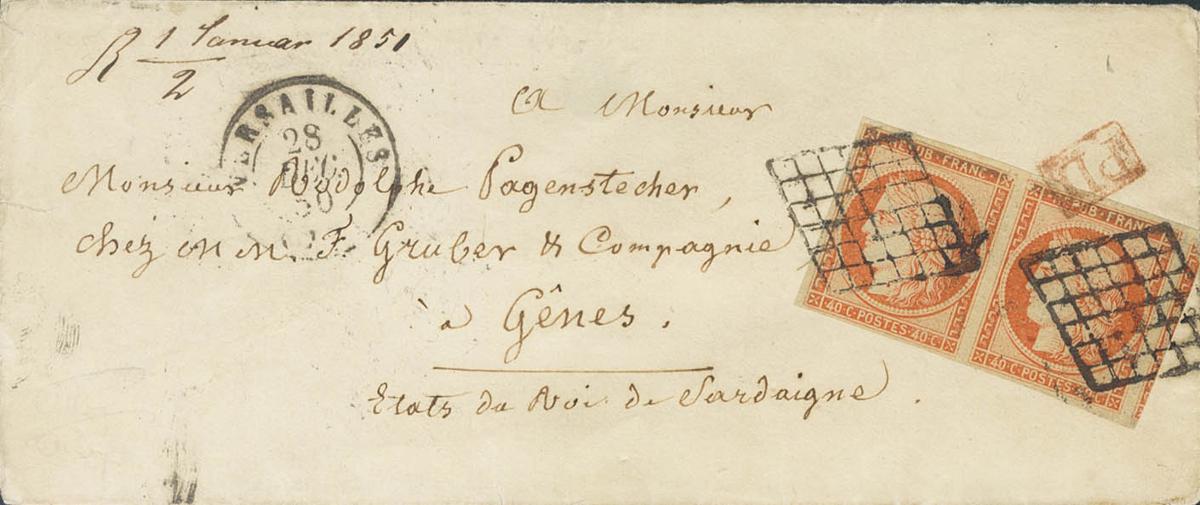 R 1 Januar 1851
2
VERSAILLES
28
DEC.
50
A Monsieur
Monsieur Rodolphe Pagenstecher,
chez M M. F. Gruber & Compagnie
à Gênes.
Etats du Roi de Sardaigne.
REPUB. FRANC.
40·C·POSTES·40·C·
REPUB. FRANC.
40·C·POSTES·40·C·
PD